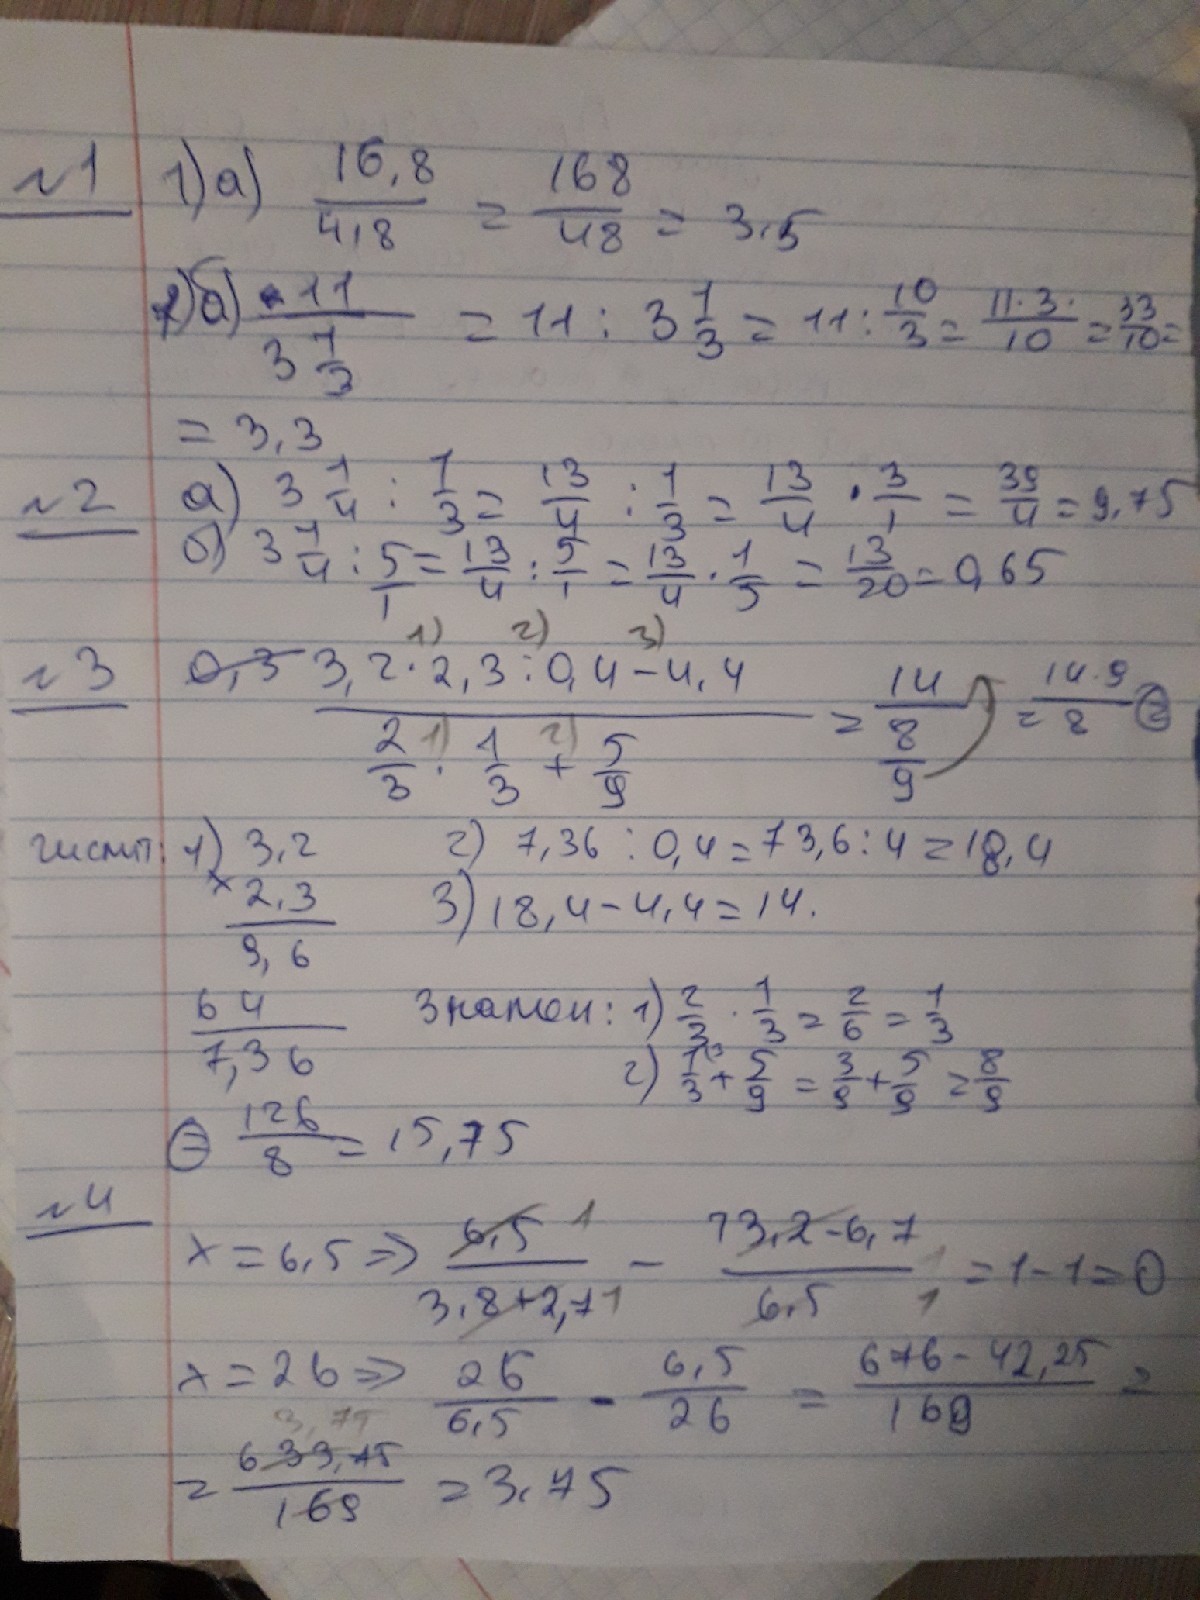 №1 1) а) 16,8/4,8 = 168/48 = 3,5
б) 11/(3 1/3) = 11 : 3 1/3 = 11 : 10/3 = 11·3·/10 = 33/10 =
= 3,3
№2 а) 3 1/4 : 1/3 = 13/4 : 1/3 = 13/4 · 3/1 = 39/4 = 9,75
б) 3 1/4 : 5/1 = 13/4 : 5/1 = 13/4 · 1/5 = 13/20 = 0,65
1) 2) 3)
№3 0,3 3,2·2,3:0,4-4,4 / (2/3 1) · 1/3 2) + 5/9) = 14/(8/9) = 14·9/8 =
числит: 1) 3,2 2) 7,36 : 0,4 = 73,6 : 4 = 18,4
× 2,3 3) 18,4 - 4,4 = 14.
9,6
64 Знамен: 1) 2/3 · 1/3 = 2/6 = 1/3
7,36 2) 1/3 + 5/9 = 3/9 + 5/9 = 8/9
= 126/8 = 15,75
№4
x = 6,5 => 6,5 1/(3,8+2,7 1) - 13,2-6,7 1/6,5 1 = 1-1=0
x = 26 => 26/6,5 - 6,5/26 = 676-42,25/169 =
3,75
= 633,75/169 = 3,75